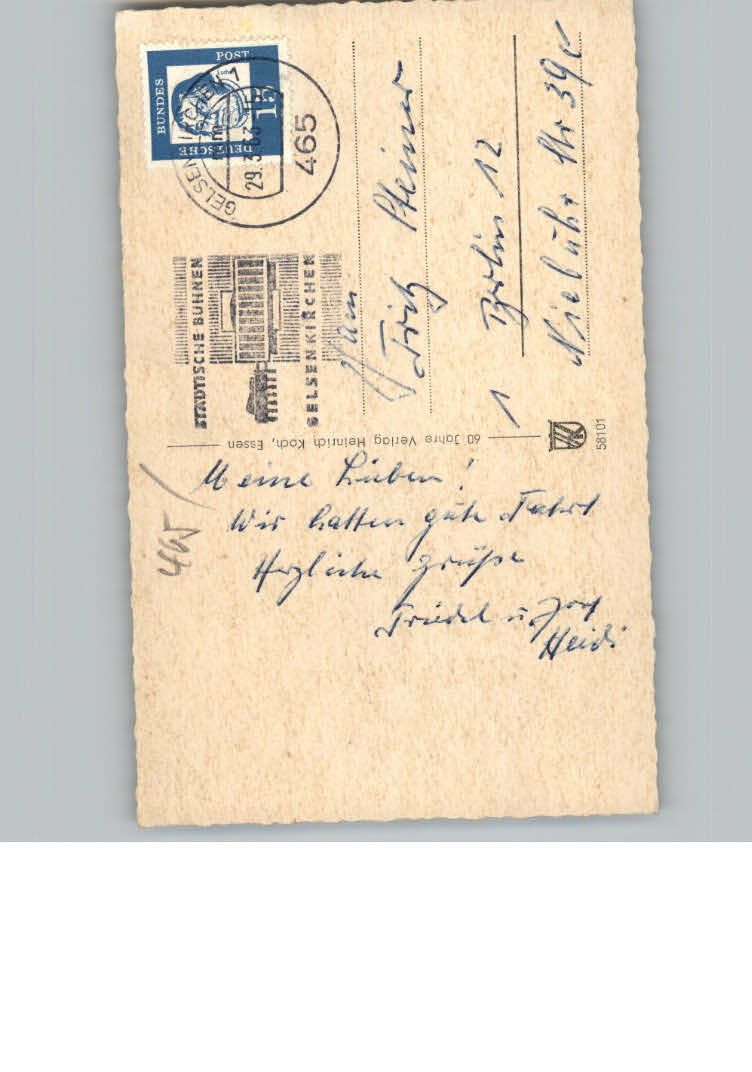 Meine Lieben!
Wir hatten gute Fahrt
Herzliche Grüße
Friedel u.
Heidi
465
60 Jahre Verlag Heinrich Koch, Essen
58101
STÄDTISCHE BÜHNEN
GELSENKIRCHEN
DEUTSCHE
BUNDES
POST
15
Luther
GELSENKIRCHEN
29.3.63
465
Fritz Steiner
1 Berlin 12
Niebuhr Str 39